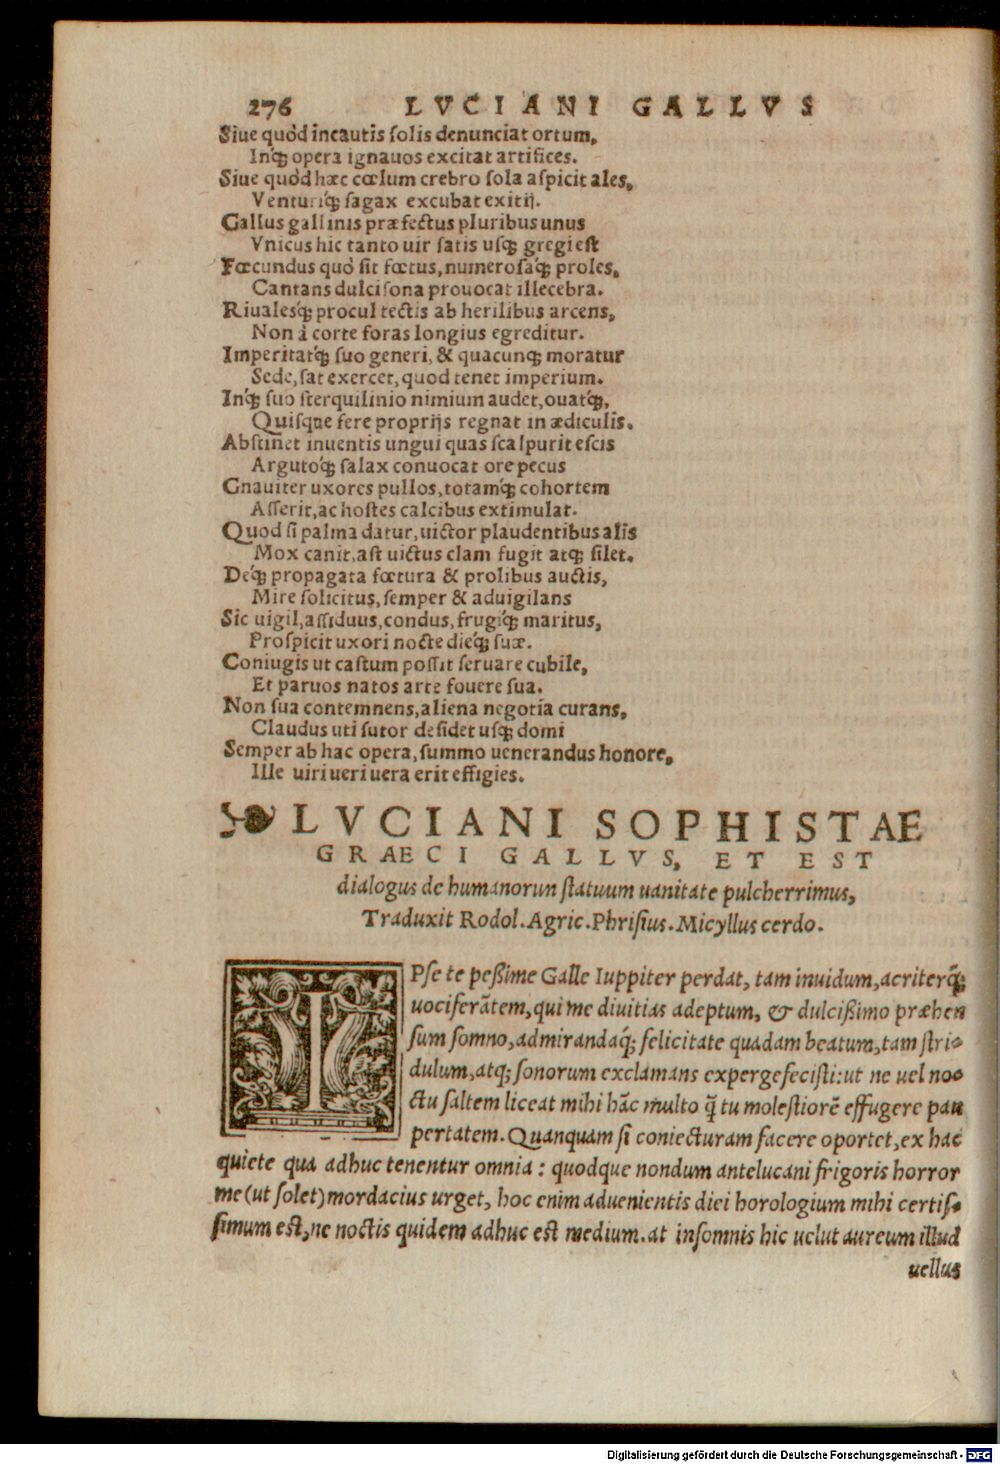 276 LVCIANI GALLVS
Siue quòd incautis ſolis denunciat ortum,
Inq́ꝫ opera ignauos excitat artifices.
Siue quòd hæc cœlum crebro ſola aſpicit ales,
Venturiq́ꝫ ſagax excubat exitij.
Gallus gallinis præfectus pluribus unus
Vnicus hic tanto uir ſatis uſqꝫ gregi eſt
Fœcundus quò ſit fœtus, numeroſaq́ꝫ proles,
Cantans dulciſona prouocat illecebra.
Riualesq́ꝫ procul tectis ab herilibus arcens,
Non à corte foras longius egreditur.
Imperitatq́ꝫ ſuo generi, & quacunqꝫ moratur
Sede, ſat exercet, quod tenet imperium.
Inq́ꝫ ſuo ſterquilinio nimium audet, ouatq́ꝫ,
Quiſque fere proprijs regnat in ædiculis.
Abſtinet inuentis ungui quas ſcalpurit eſcis
Argutoq́ꝫ ſalax conuocat ore pecus
Gnauiter uxores pullos, totamq́ꝫ cohortem
Aſſerit, ac hoſtes calcibus extimulat.
Quod ſi palma datur, uictor plaudentibus alis
Mox canit, aſt uictus clam fugit atqꝫ ſilet.
Deq́ꝫ propagata fœtura & prolibus auctis,
Mire ſolicitus, ſemper & aduigilans
Sic uigil, aſſiduus, condus, frugiq́ꝫ maritus,
Proſpicit uxori nocte dieq́ꝫ ſuæ.
Coniugis ut caſtum poſſit ſeruare cubile,
Et paruos natos arte fouere ſua.
Non ſua contemnens, aliena negotia curans,
Claudus uti ſutor deſidet uſqꝫ domi
Semper ab hac opera, ſummo uenerandus honore,
Ille uiri ueri uera erit effigies.
LVCIANI SOPHISTAE
GRAECI GALLVS, ET EST
dialogus de humanorun ſtatuum uanitate pulcherrimus,
Traduxit Rodol. Agric. Phriſius. Micyllus cerdo.
IPſe te peßime Galle Iuppiter perdat, tam inuidum, acriterq́ꝫ
uociferātem, qui me diuitias adeptum, & dulcißimo præhen
ſum ſomno, admirandaq́ꝫ felicitate quadam beatum, tam ſtri-
dulum, atqꝫ ſonorum exclamans expergefeciſti: ut ne uel no-
ctu ſaltem liceat mihi hāc multo q̄ tu moleſtiorē effugere pau
pertatem. Quanquam ſi coniecturam facere oportet, ex hac
quiete qua adhuc tenentur omnia : quodque nondum antelucani frigoris horror
me (ut ſolet) mordacius urget, hoc enim aduenientis diei horologium mihi certiſ-
ſimum eſt, ne noctis quidem adhuc eſt medium. at inſomnis hic uelut aureum illud
uellus
Digitalisierung gefördert durch die Deutsche Forschungsgemeinschaft - DFG